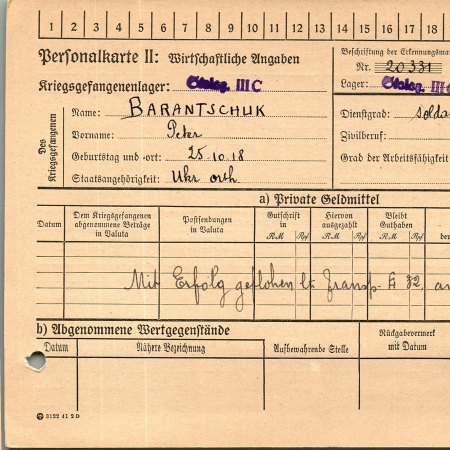 1 2 3 4 5 6 7 8 9 10 11 12 13 14 15 16 17 18
Personalkarte II: Wirtschaftliche Angaben
Beschriftung der Erkennungsma
Nr. 20331
Kriegsgefangenenlager: Stalag III C
Lager: Stalag III
Des Kriegsgefangenen
Name: BARANTSCHUK
Vorname: Peter
Geburtstag und -ort: 25.10.18
Staatsangehörigkeit: Ukr orth.
Dienstgrad: solda
Zivilberuf:
Grad der Arbeitsfähigkeit
a) Private Geldmittel
Datum
Dem Kriegsgefangenen abgenommene Beträge in Valuta
Postsendungen in Valuta
Gutschrift in
RM Rpf
Hiervon ausgezahlt
RM Rpf
Bleibt Guthaben
RM Rpf
der
Mit Erfolg geflohen lt. Transp. 32, an
b) Abgenommene Wertgegenstände
Datum
Nähere Bezeichnung
Aufbewahrende Stelle
Rückgabevermerk mit Datum
3122 41 2 D